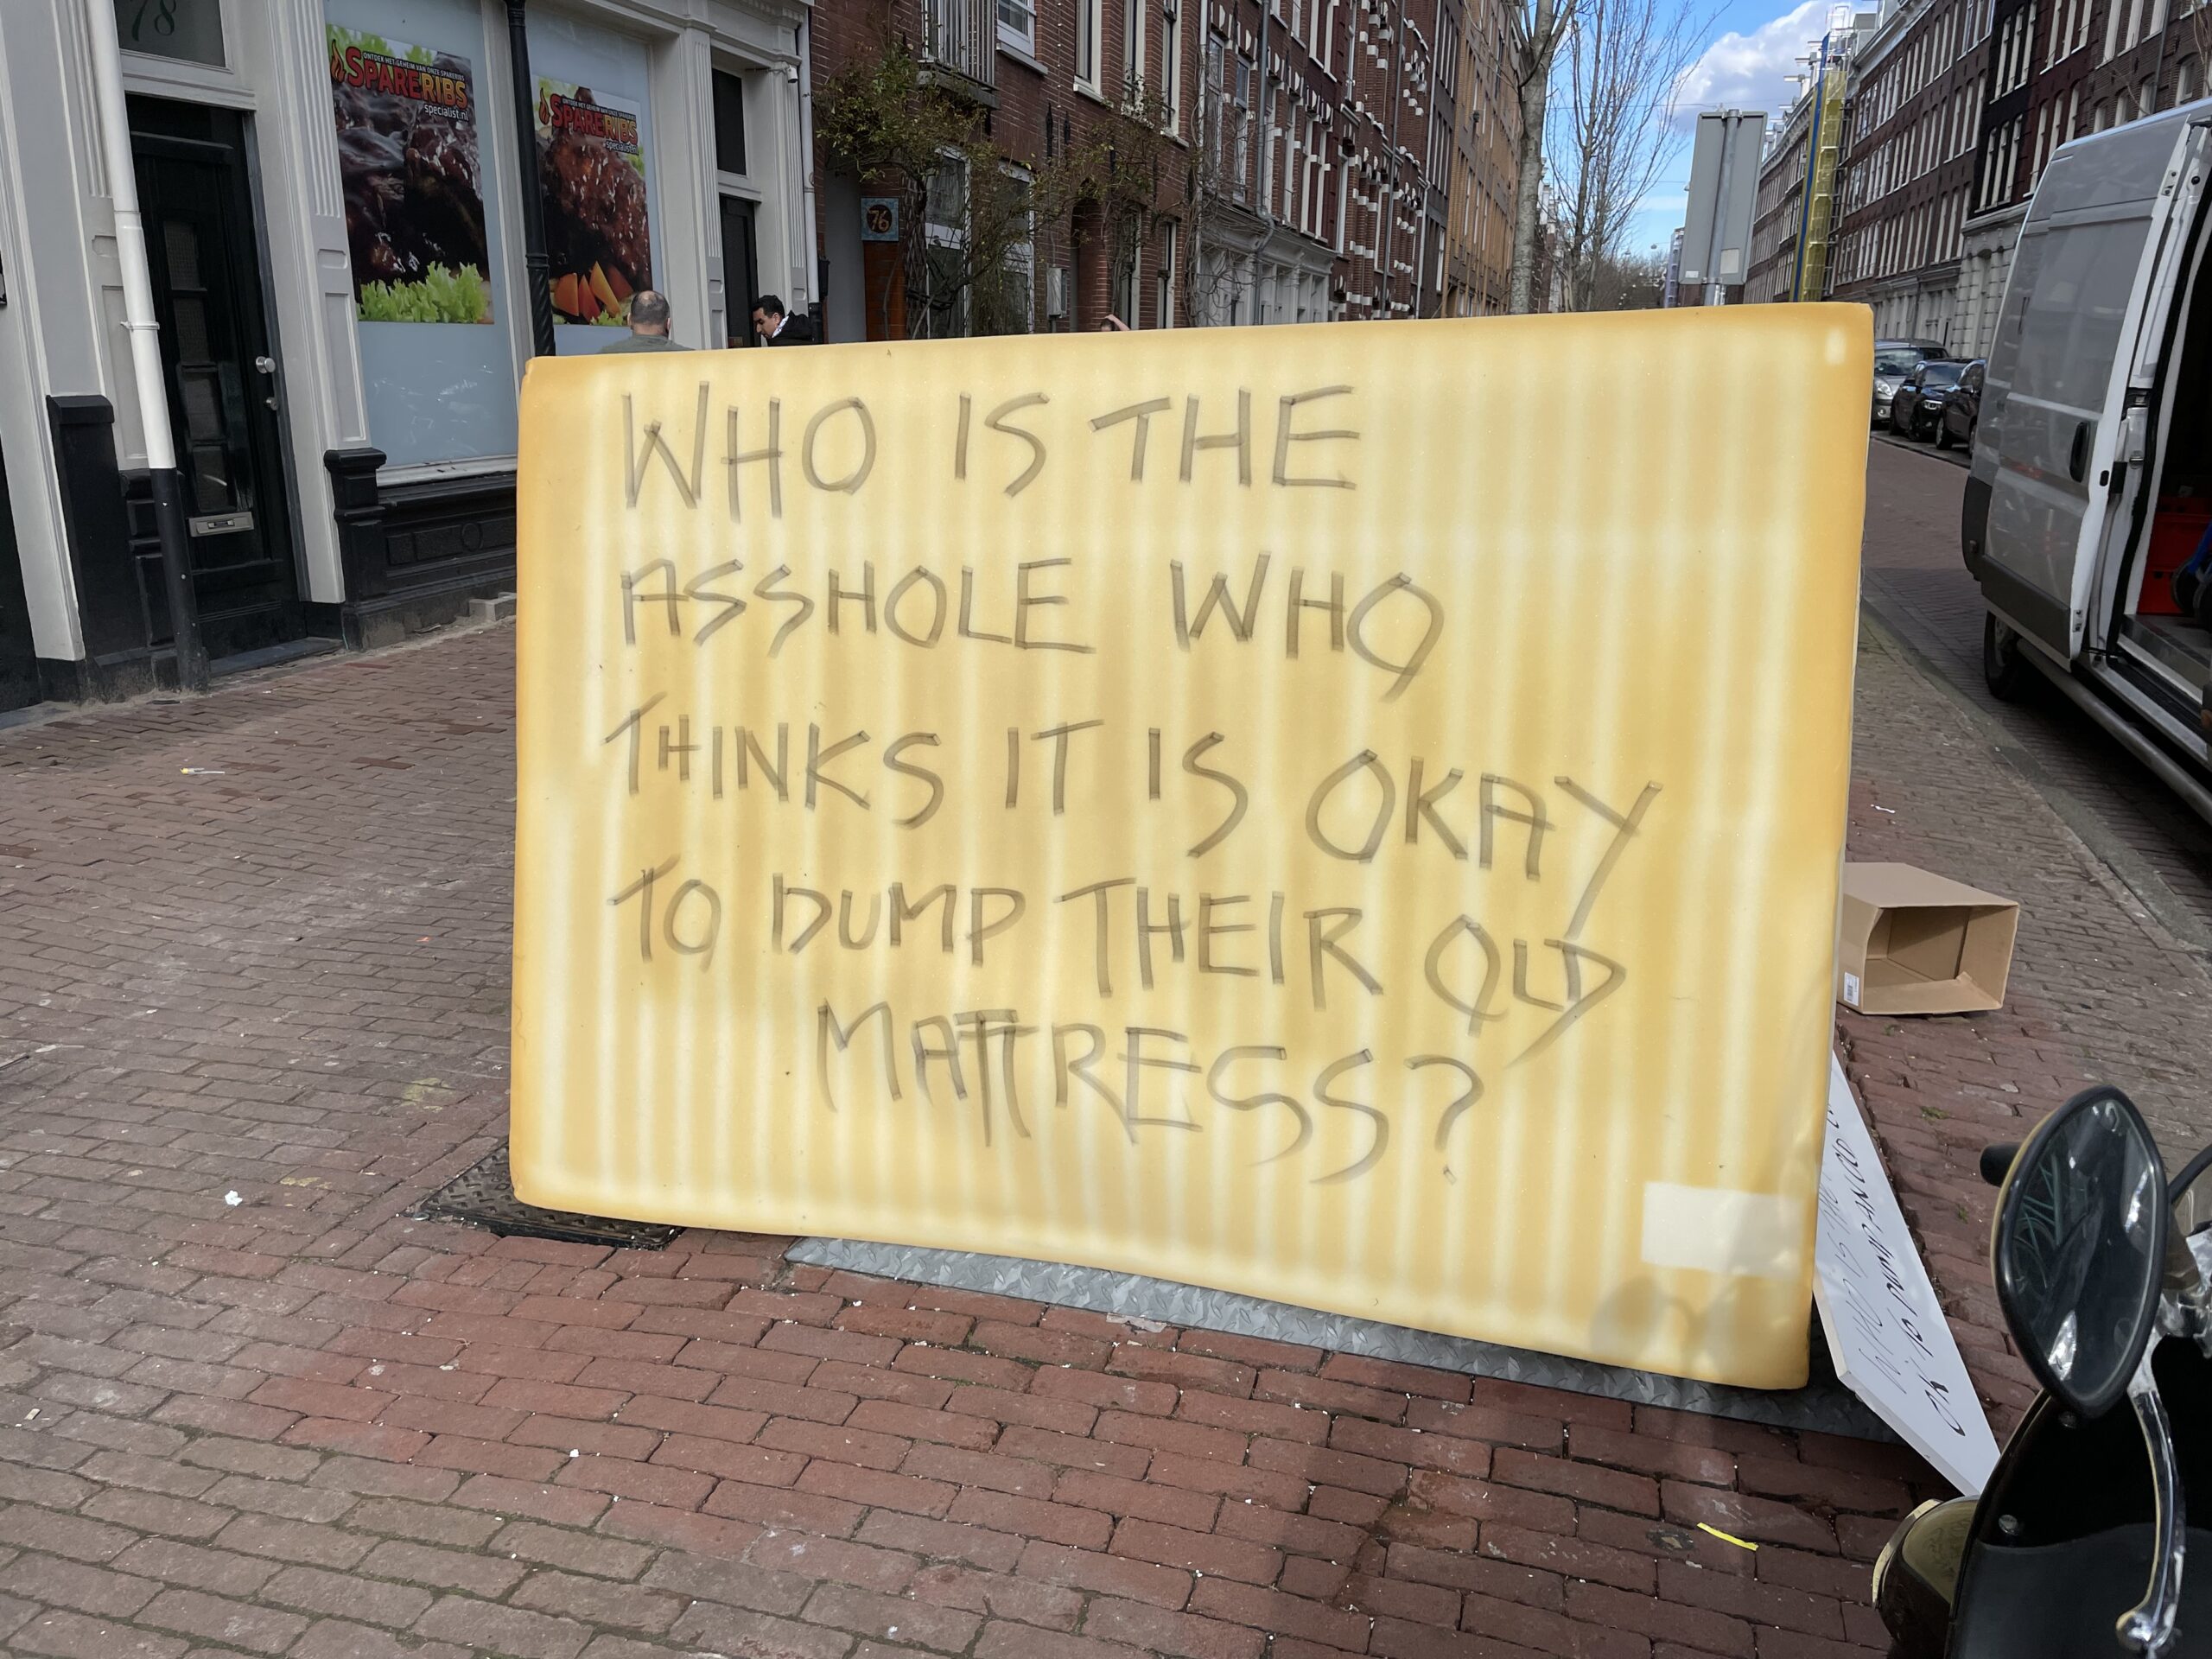 78
ONTDEK HET GEHEIM VAN ONZE SPARERIBS
SPARERIBS
specialist.nl
ONTDEK HET GEHEIM VAN ONZE SPARERIBS
SPARERIBS
specialist.nl
76
WHO IS THE
ASSHOLE WHO
THINKS IT IS OKAY
TO DUMP THEIR OLD
MATTRESS?
WHO IS THE
OK TO DUMP AN OLD